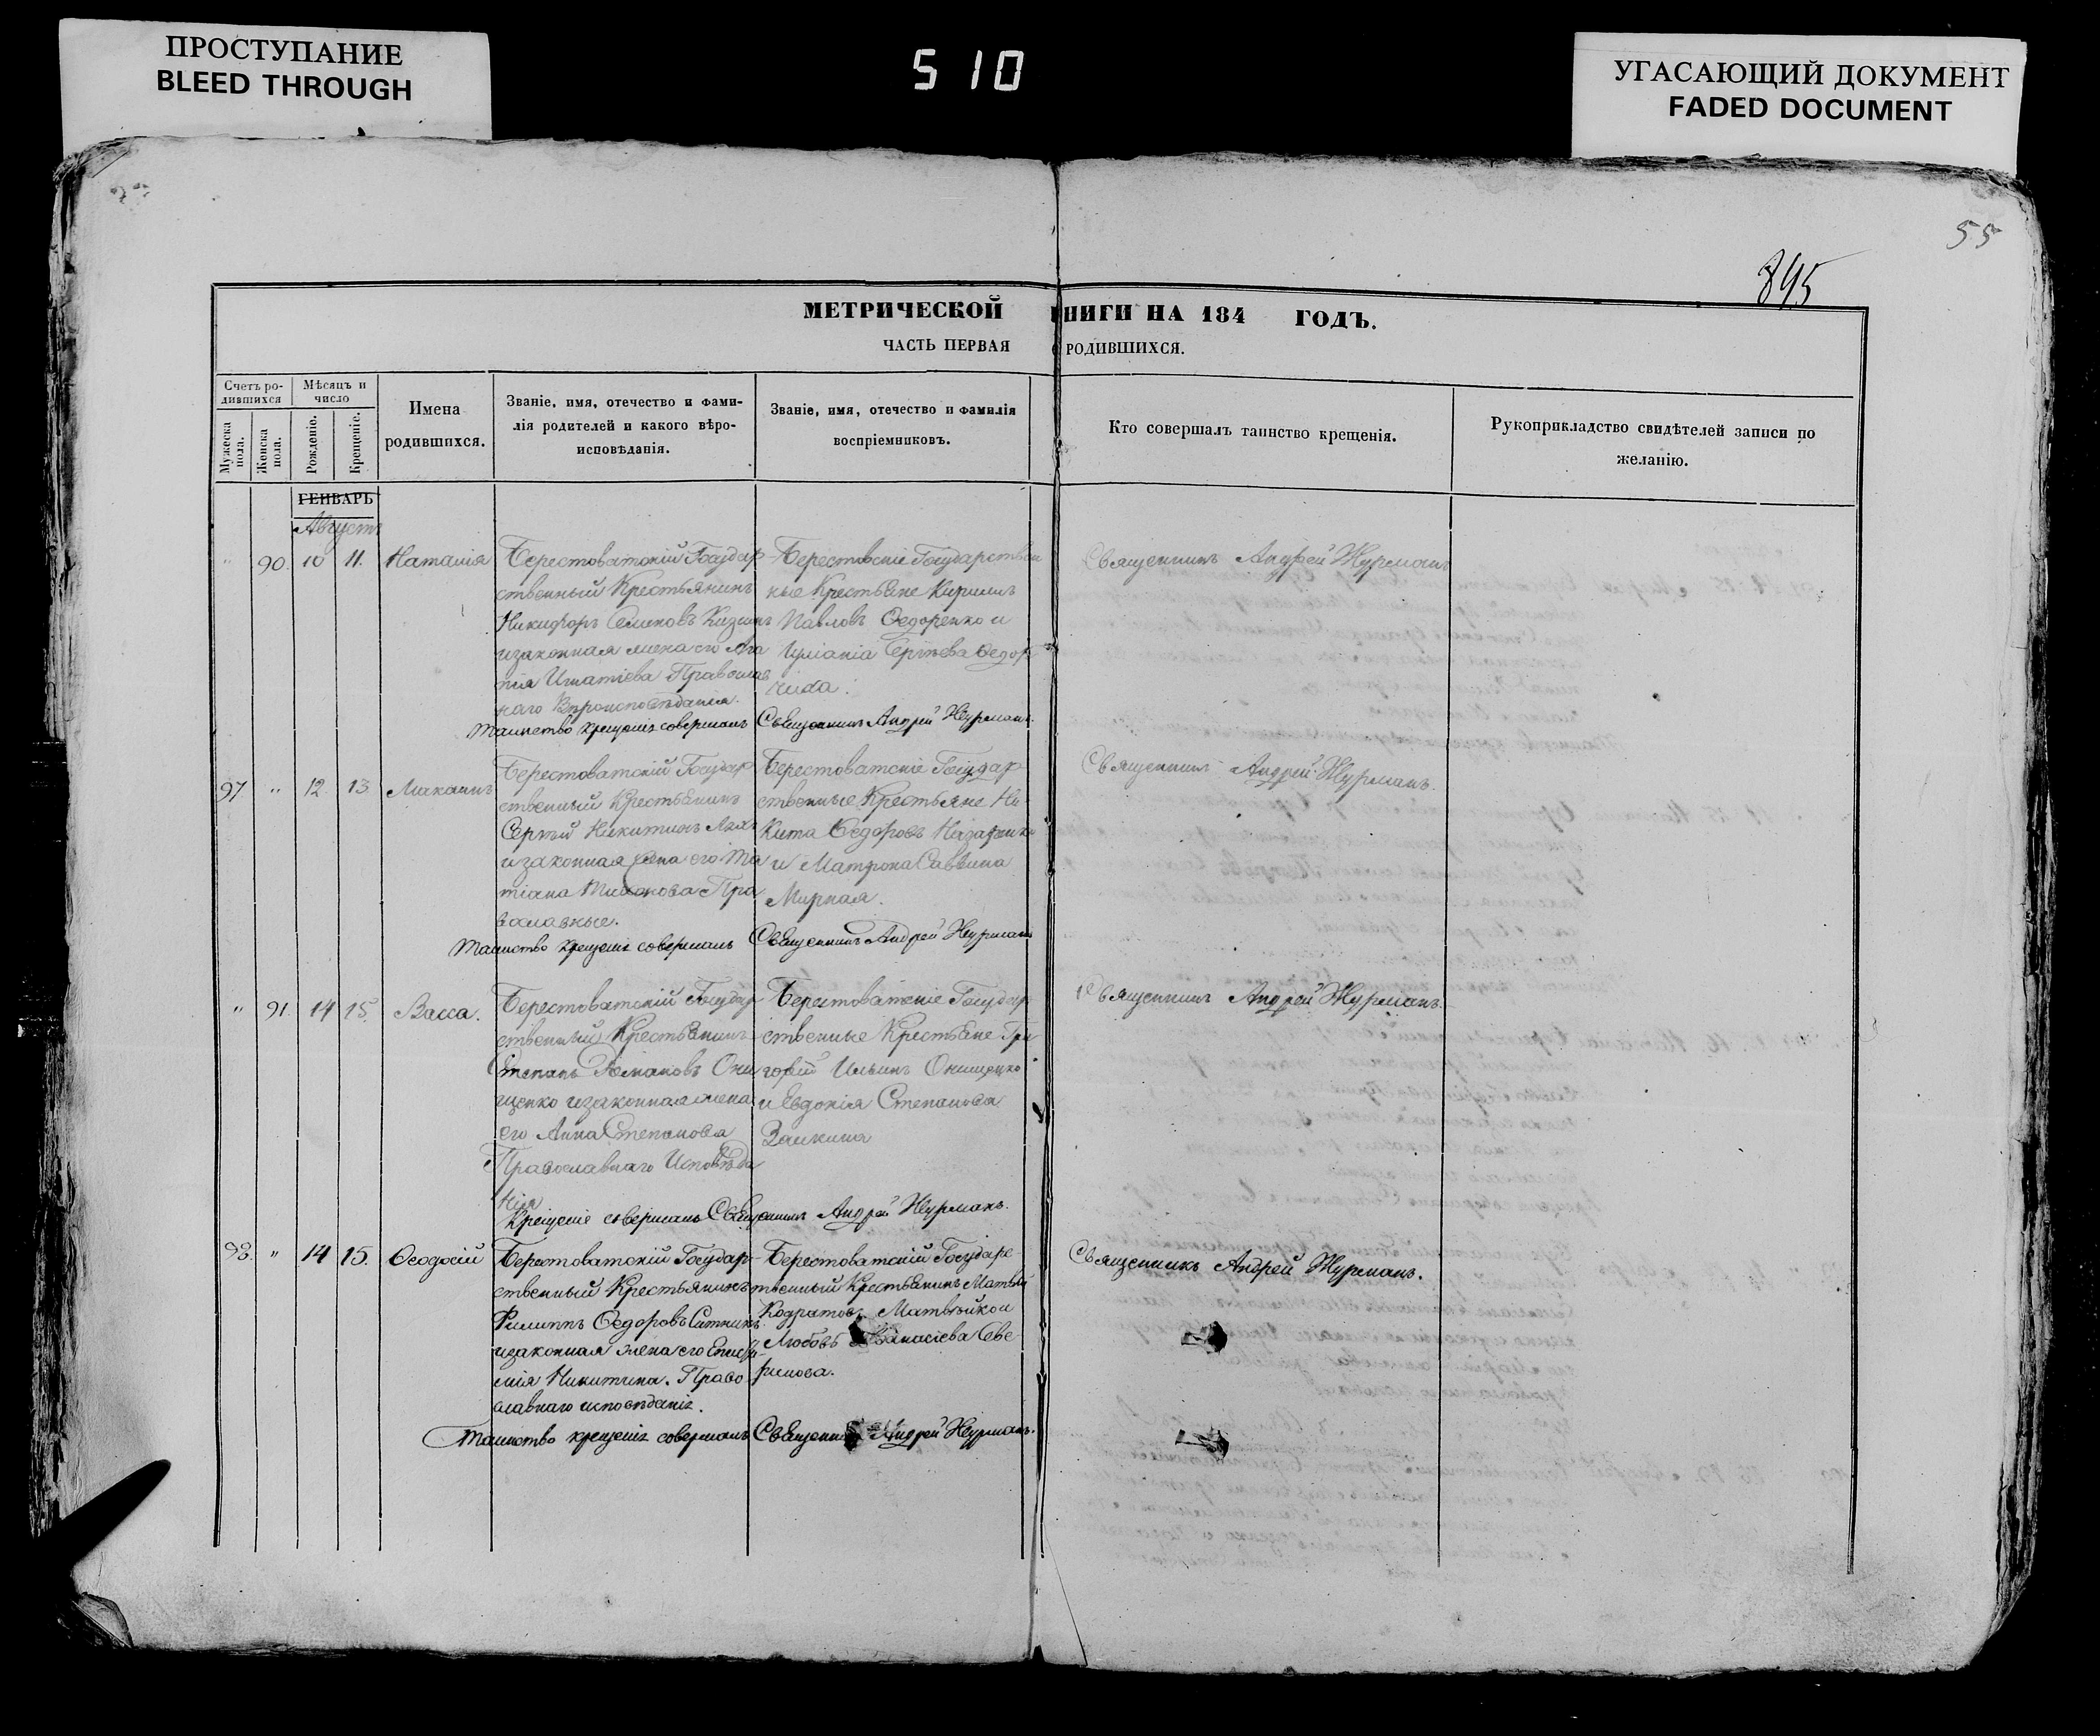 ПРОСТУПАНИЕ
BLEED THROUGH
510
УГАСАЮЩИЙ ДОКУМЕНТ
FADED DOCUMENT
55
895
МЕТРИЧЕСКОЙ НИГИ НА 184 ГОДЪ.
ЧАСТЬ ПЕРВАЯ РОДИВШИХСЯ.
Счетъ ро-
дившихся
Мѣсяцъ и
число
Мужеска
пола.
Женска
пола.
Рожденіе.
Крещеніе.
Имена
родившихся.
Званіе, имя, отечество и фами-
лія родителей и какого вѣро-
исповѣданія.
Званіе, имя, отечество и фамилія
воспріемниковъ.
Кто совершалъ таинство крещенія.
Рукоприкладство свидѣтелей записи по
желанію.
ГЕНВАРЬ
Августъ
" 90. 10 11. Наталія
Берестоватскій Государ
ственный Крестьянинъ
Никифоръ Семеновъ
изаконная жена его Ага
пія Игнатіева Православ
наго Вѣроисповѣданія.
Берестовскіе Государствен
ные Крестьяне Кириллъ
Павловъ Ѳедоренко и
Іуліанія Сергѣева Ѳедор
чиха.
Священникъ Андрей Журманъ
Таинство крещенія совершалъ Священникъ Андрей Журманъ.
97 " 12. 13.
Берестоватскій Государ
ственный Крестьянинъ
Сергѣй Никитинъ
изаконная жена его Та
тіана Тихонова Пра
вославные.
Берестоватскіе Государ
ственные Крестьяне Ни
кита Ѳедоровъ Назаренко
и Матрона Саввина
Мирная.
Священникъ Андрей Журманъ.
Таинство крещенія совершалъ Священникъ Андрей Журманъ
" 91. 14 15. Васса.
Берестоватскій Государ
ственный Крестьянинъ
Степанъ Романовъ Они
щенко изаконная жена
его Анна Степанова
Православнаго Исповѣда
нія
Берестоватскіе Государ
ственные Крестьяне Гри
горій Ильинъ Онищенко
и Евдокія Степанова
Заикина
Священникъ Андрей Журманъ.
Крещеніе совершалъ Священникъ Андрей Журманъ.
98. " 14 15. Ѳеодосій
Берестоватскій Государ-
ственный Крестьянинъ
Филиппъ Ѳедоровъ Ситникъ
изаконная жена его Епис
мія Никитина. Право
славнаго исповѣданія.
Берестоватскій Государс
твенный Крестьянинъ Матвѣй
Кодратовъ Матвѣйко и
Любовь Аванасіева Севе
ринова.
Священникъ Андрей Журманъ.
Таинство крещенія совершалъ Священникъ Андрей Журманъ.